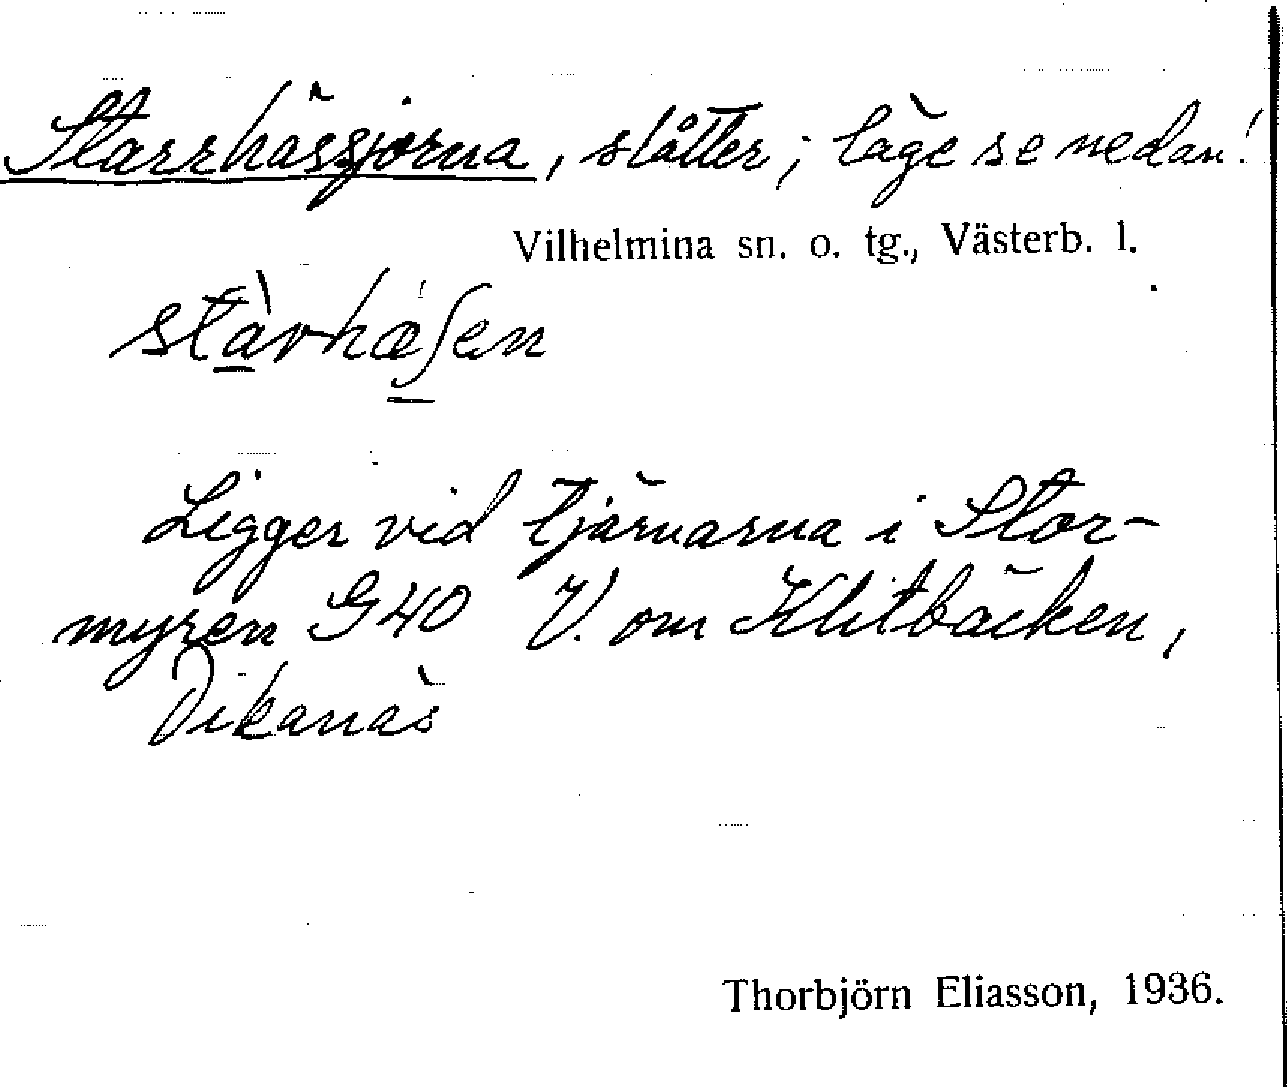 Starrhässjorna, slåtter; läge se nedan!
Vilhelmina sn. o. tg., Västerb. l.
stàrhæʃen
Ligger vid tjärnarna i Stor-
myren G40 V. om Klitbäcken,
Dikanäs
Thorbjörn Eliasson, 1936.